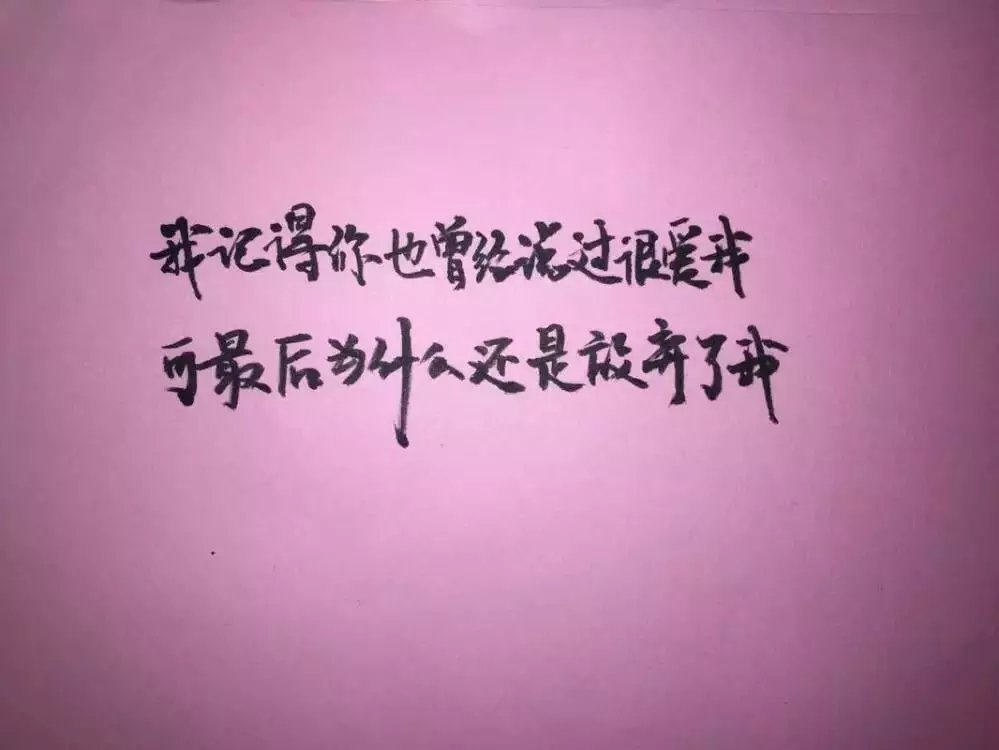 我记得你也曾经说过很爱我
可最后为什么还是放弃了我